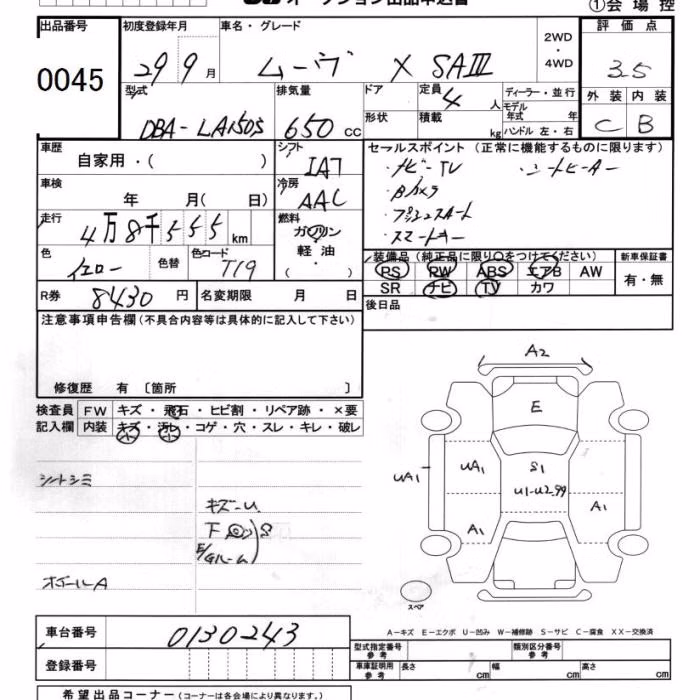 オークション出品申込書
①会場控
出品番号 0045
初度登録年月 29 9月
車名・グレード ムーヴ X SAⅢ
2WD・4WD
評価点 3.5
外装 C 内装 B
型式 DBA-LA150S
排気量 650cc
ドア
形状
定員 4人
積載 kg
ディーラー・並行
モデル年式 年
ハンドル 左・右
車歴 自家用・( )
シフト IAT
セールスポイント(正常に機能するものに限ります)
・ナビ・TV ・シートヒーター
・プッシュスタート
・スマートキー
車検 年 月( 日)
冷房 AAC
走行 4万8千555km
燃料 ガソリン
軽油
・( )
色 イエロー 色替 色コード T19
装備品(純正品に限り○をつけてください)
PS PW ABS エアB AW
SR ナビ TV カワ
新車保証書 有・無
R券 8430円 名変期限 月 日
後日品
注意事項申告欄(不具合内容等は具体的に記入して下さい)
修復歴 有 〔箇所 〕
検査員記入欄
FW キズ・飛石・ヒビ割・リペア跡・×要
内装 キズ・汚レ・コゲ・穴・スレ・キレ・破レ
シートシミ
キズ-U
下
A2
E
UA1 UA1 S1
U1-U2.99 A1
A1
スペア
A-キズ E-エクボ U-凹み W-補修跡 S-サビ C-腐食 XX-交換済
車台番号 0130243
登録番号
型式指定番号 参考
類別区分番号 参考
車庫証明用 参考 長さ cm 幅 cm 高さ cm
希望出品コーナー(コーナーは各会場により異なります。)